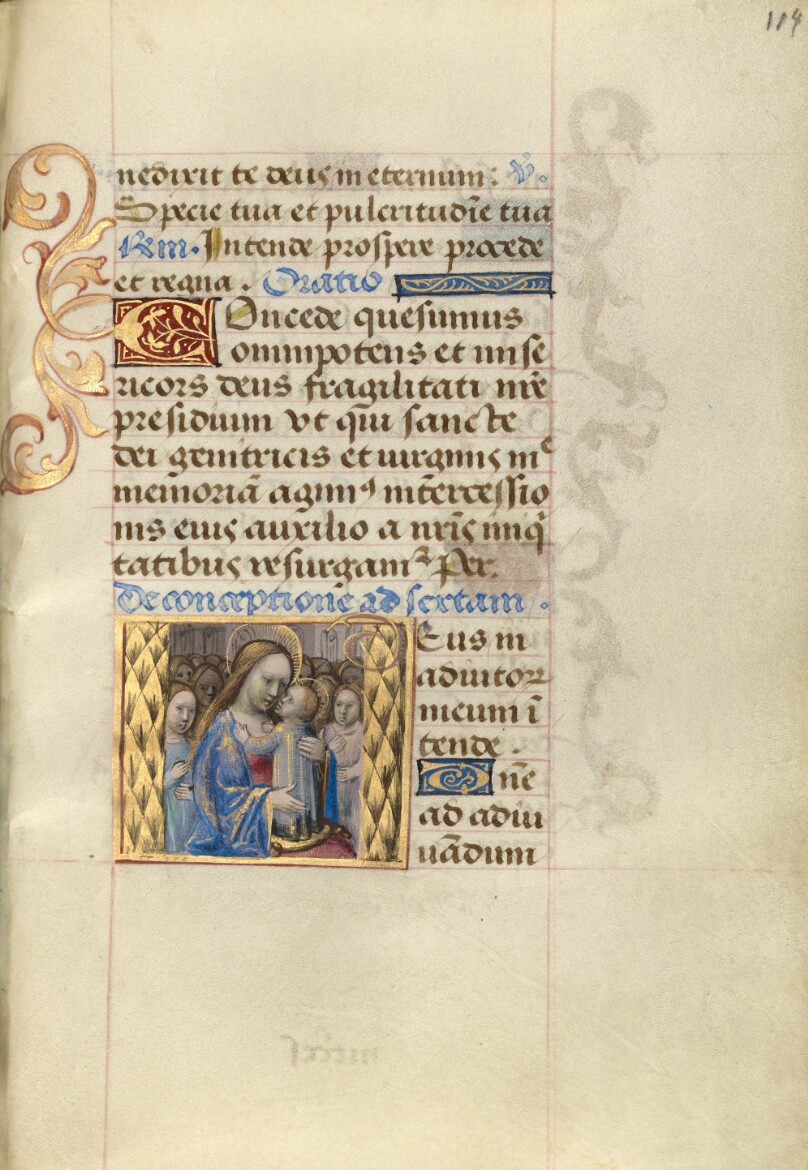 114
nedixit te deus in eternum: ℣.
Specie tua et pulcritudīe tua
Rem. Intende prospere procede
et regna. Oratio
Concede quesumus
omnipotens et mise
ricors deus fragilitati nr̄e
presidium vt qui sancte
dei genitricis et uirginis m
memoriā agimꝰ intercessio
nis eius auxilio a nr̄is iniq
tatibus resurgamꝰ Per.
De conceptione ad sextam.
Deus in
adiutoꝛ
meum ī
tende.
Dn̄e
ad adiu
uādum